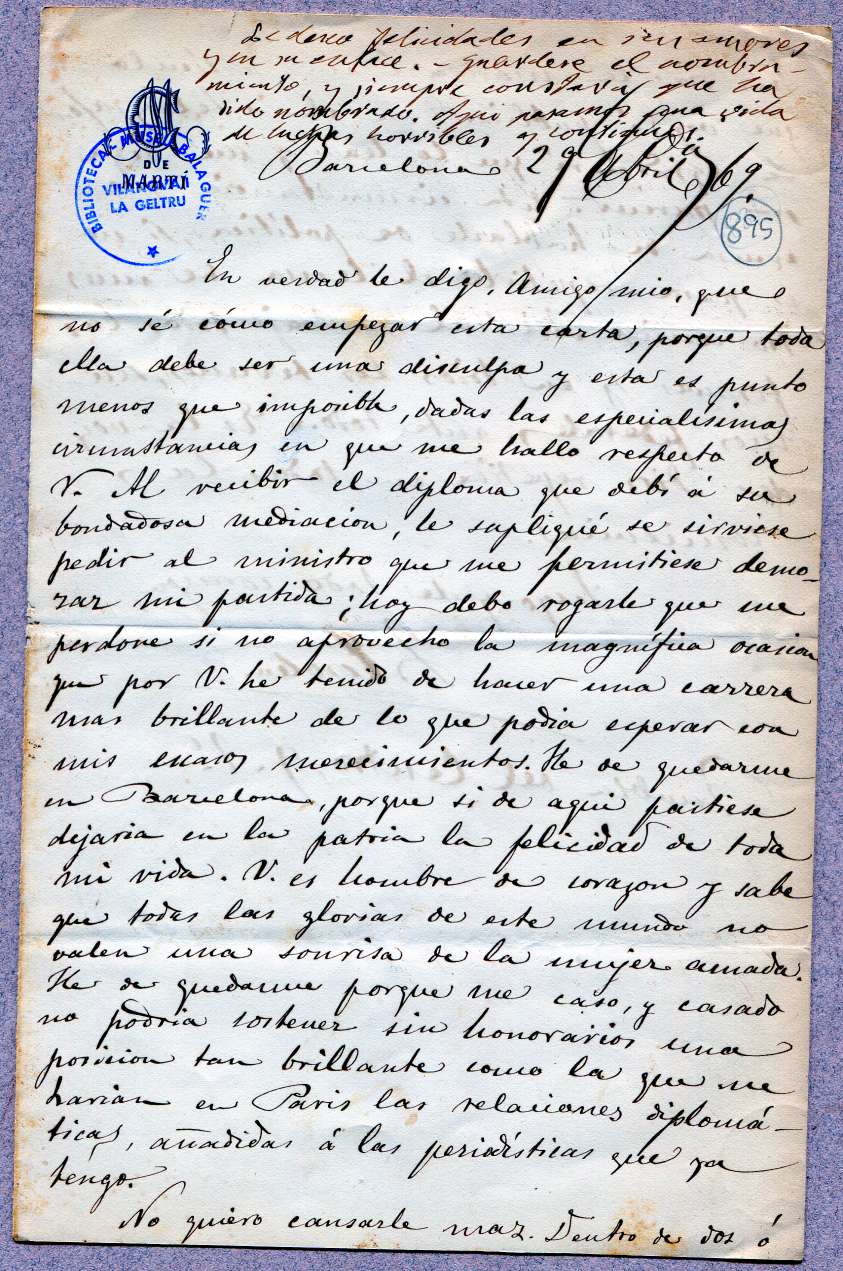 Le deseo felicidades en sus amores
y en su enlace. - Guardese el nombra-
miento, y siempre constará que ha
sido nombrado. Aqui pasamos una vida
de luchas horribles y continuas.
DUE
MARTÍ
BIBLIOTECA-MUSEU BALAGUER
VILANOVA I
LA GELTRU
Barcelona 29 Abril 69.
895
En verdad le digo, Amigo mio, que
no sé cómo empezar esta carta, porque toda
ella debe ser una disculpa y esta es punto
menos que imposible, dadas las especialísimas
circunstancias en que me hallo respecto de
V. Al recibir el diploma que debí á su
bondadosa mediacion, le supliqué se sirviese
pedir al ministro que me permitiese demo-
rar mi partida; hoy debo rogarle que me
perdone si no aprovecho la magnífica ocasion
que por V. he tenido de hacer una carrera
mas brillante de lo que podia esperar con
mis escasos merecimientos. He de quedarme
en Barcelona, porque si de aqui partiese
dejaria en la patria la felicidad de toda
mi vida. V. es hombre de corazon y sabe
que todas las glorias de este mundo no
valen una sonrisa de la mujer amada.
He de quedarme porque me caso, y casado
no podria sostener sin honorarios una
posicion tan brillante como la que me
harian en Paris las relaciones diplomá-
ticas, añadidas á las periodísticas que ya
tengo.
No quiero cansarle mas. Dentro de dos ó